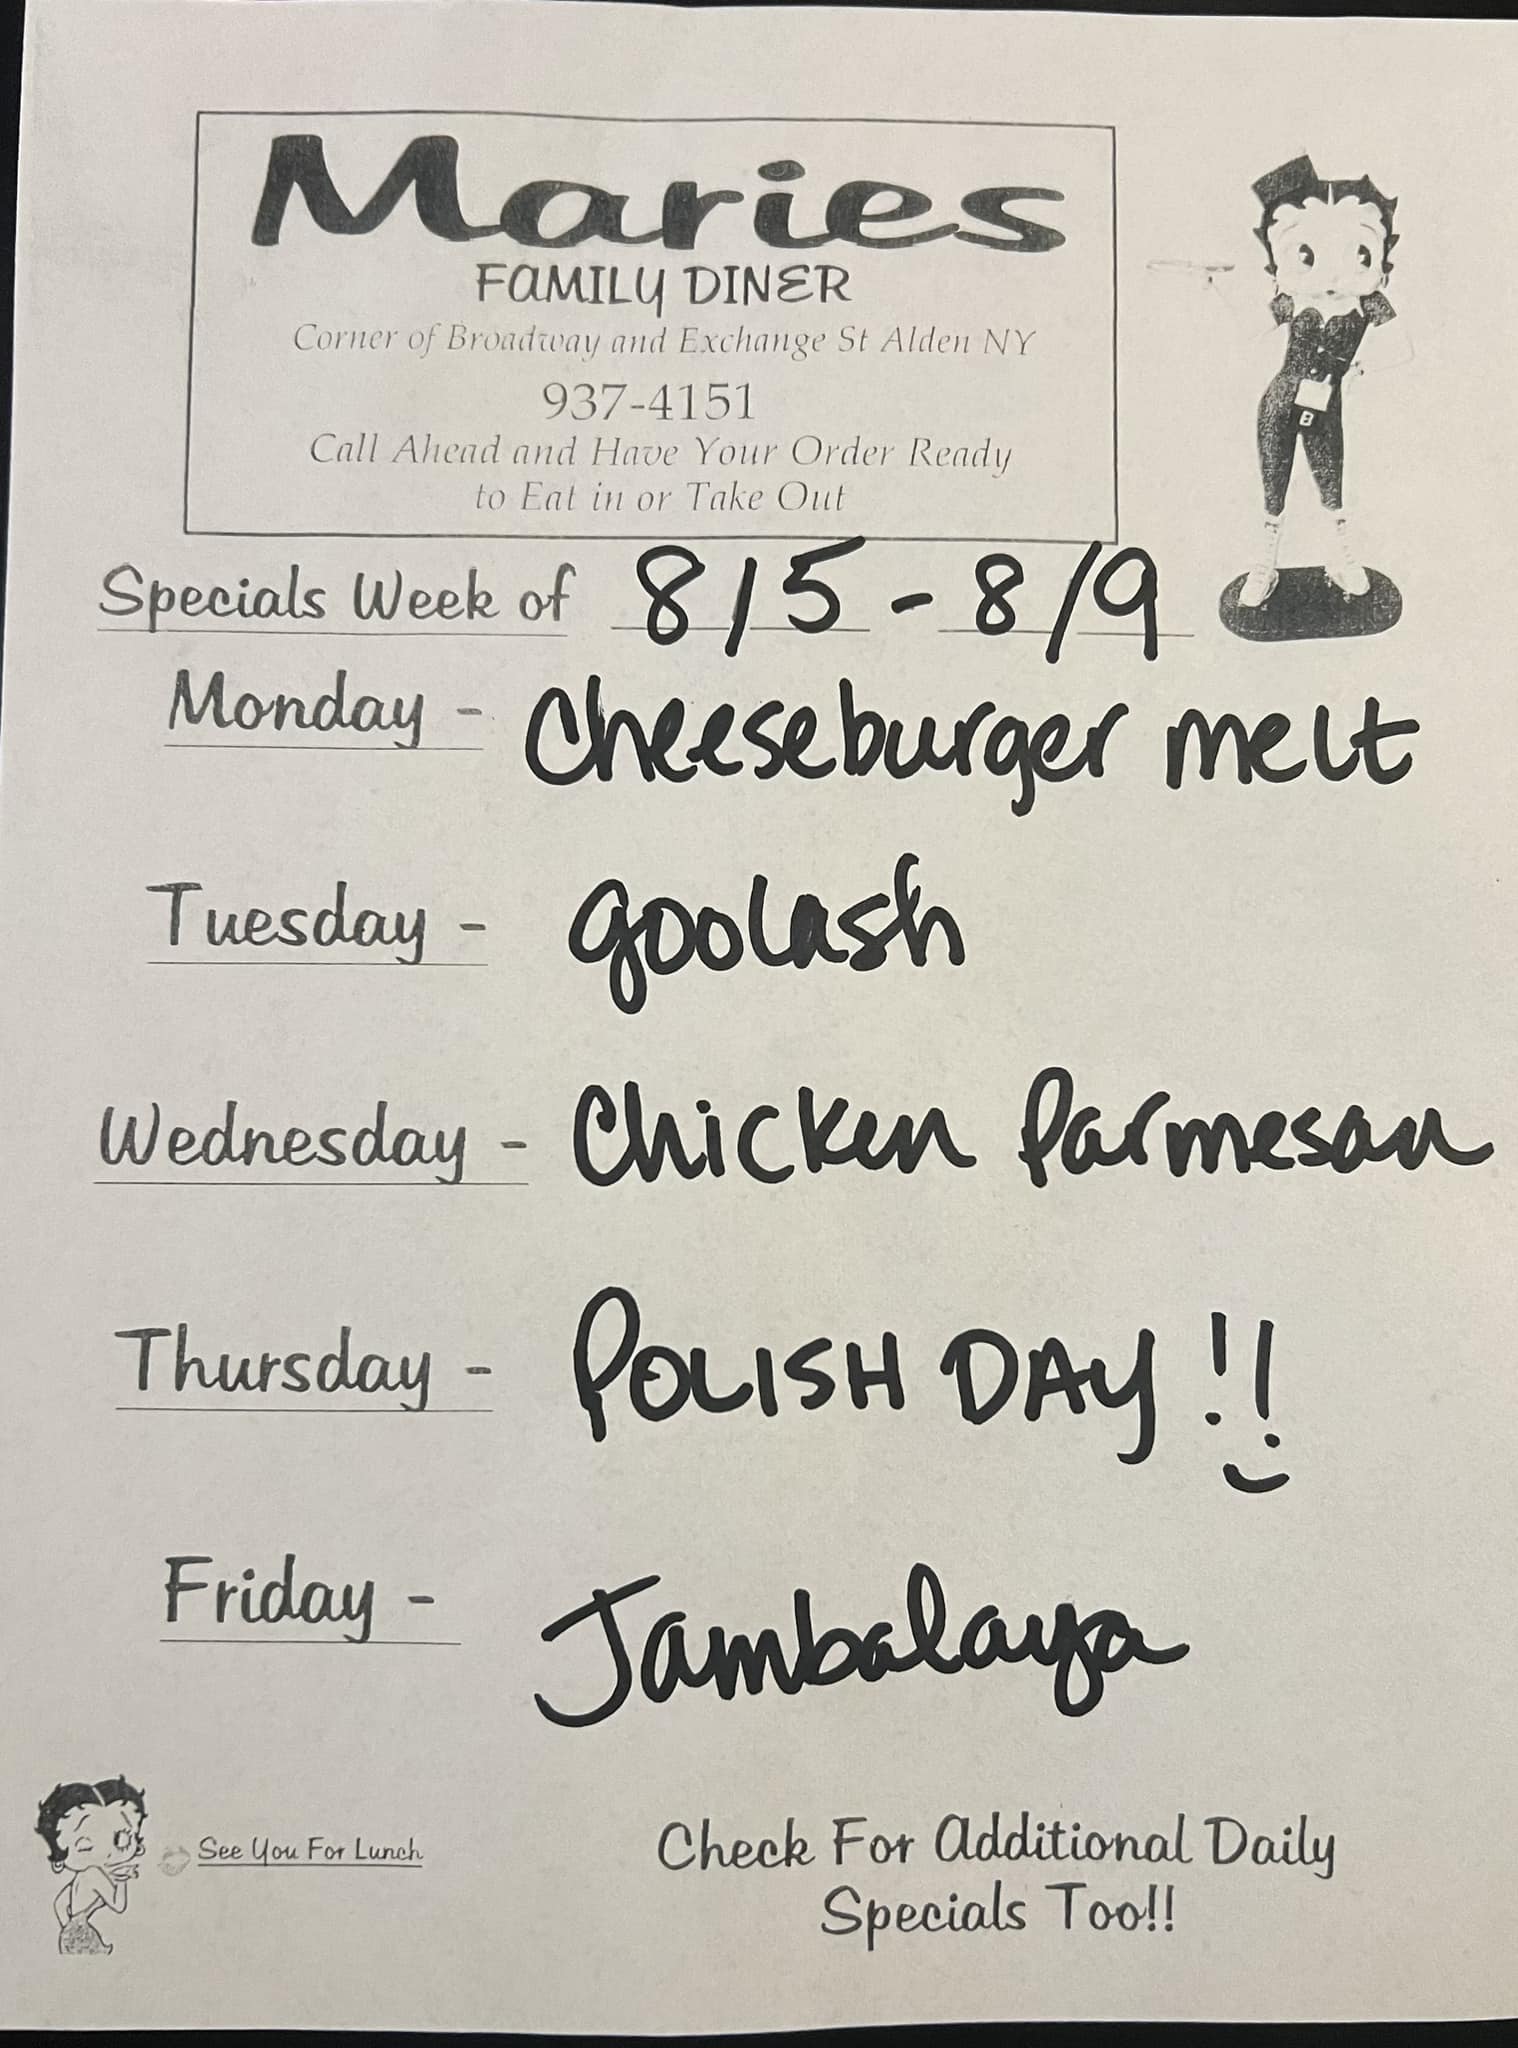 Maries
FAMILY DINER
Corner of Broadway and Exchange St Alden NY
937-4151
Call Ahead and Have Your Order Ready
to Eat in or Take Out
Specials Week of 8/5 - 8/9
Monday - Cheeseburger melt
Tuesday - goolash
Wednesday - Chicken Parmesan
Thursday - POLISH DAY !!
Friday - Jambalaya
See You For Lunch
Check For Additional Daily
Specials Too!!